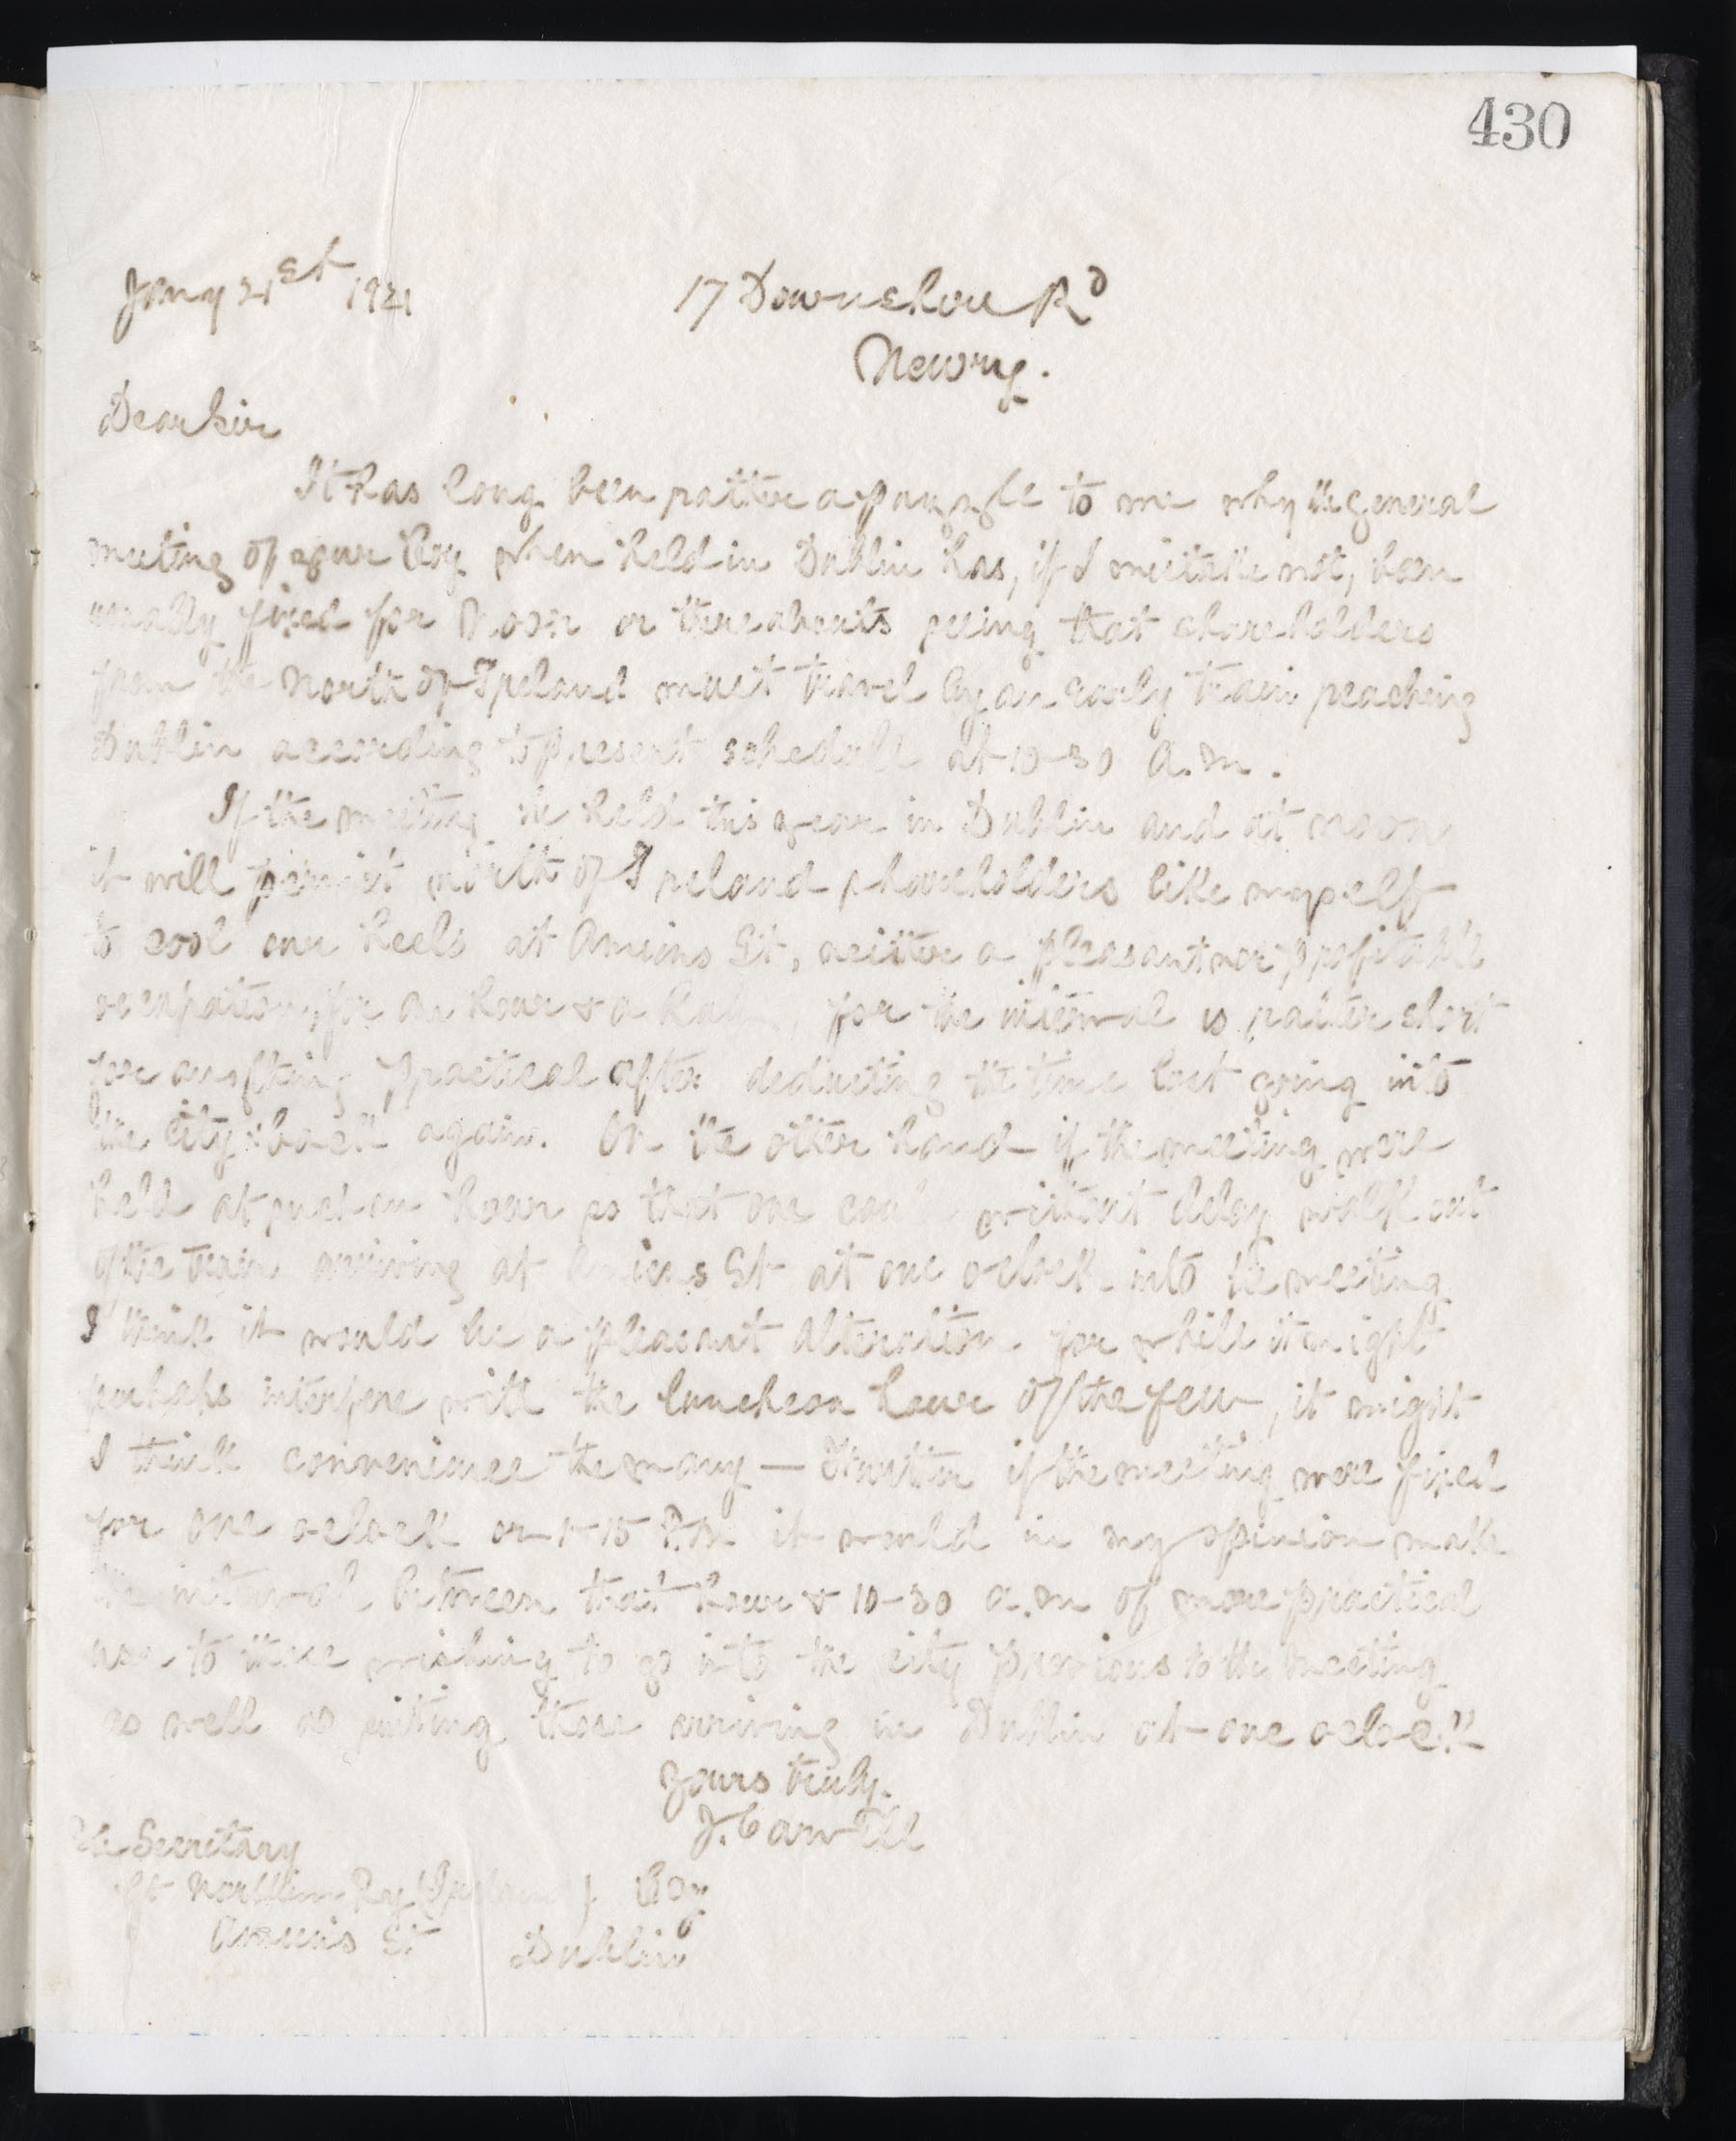 430
Jany 21st 1921 17 Downshire Rd
Newry.
Dear Sir
It has long been rather a puzzle to me why the general
meeting of your Coy when held in Dublin has, if I mistake not, been
usually fixed for Noon or thereabouts seeing that shareholders
from the North of Ireland must travel by an early train reaching
Dublin according to present schedule at 10-30 A.M.
If the meeting be held this year in Dublin and at noon
it will permit north of Ireland shareholders like myself
to cool our heels at Amiens St, neither a pleasant nor profitable
occupation, for an hour & a half, for the interval is rather short
for anything practical after deducting the time lost going into
the city & back again. On the other hand if the meeting were
held at such an hour so that one could without delay walk out
of the train arriving at Amiens St at one oclock into the meeting
I think it would be a pleasant alteration for while it might
perhaps interfere with the luncheon hour of the few, it might
I think convenience the many — Further if the meeting were fixed
for one oclock or 1-15 P.M. it would in my opinion make
the interval between that hour & 10-30 a.m of more practical
use to those wishing to go into the city previous to the meeting
as well as suiting those arriving in Dublin at one oclock
Yours truly.
J. Carvill
The Secretary
Gt Northern Ry (Ireland) Coy
Amiens St Dublin